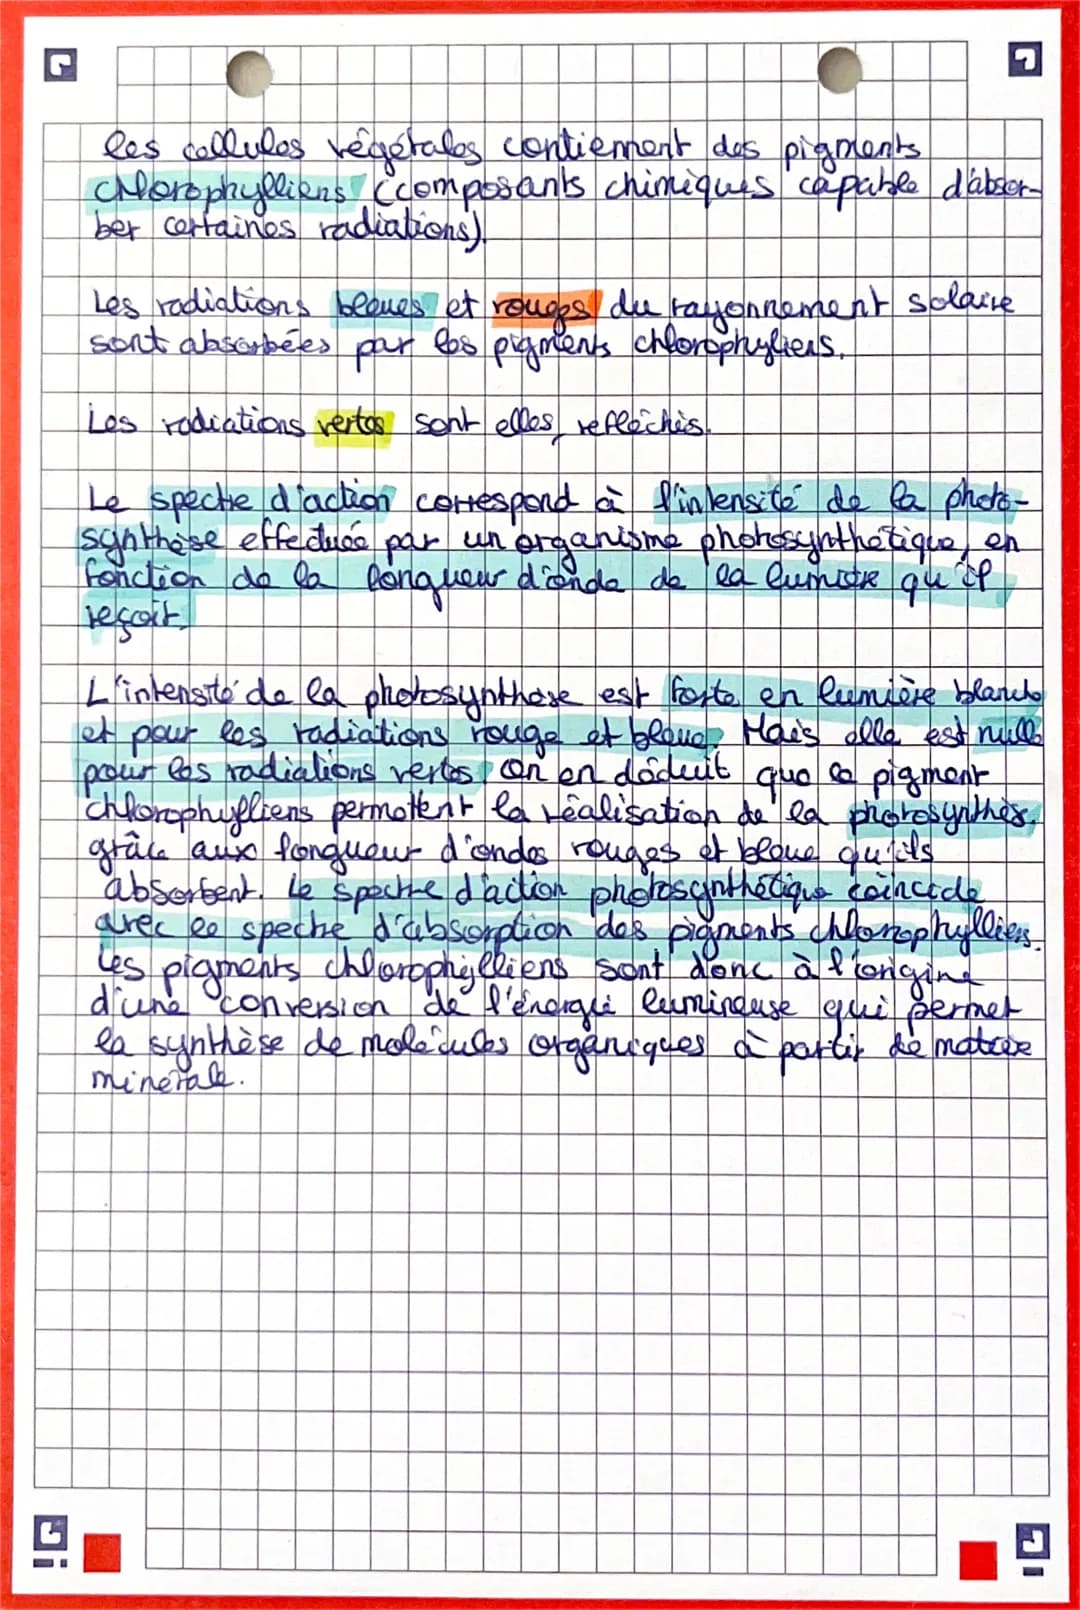 Les cellules végétales contiennent des pigments
chlorophylliens (composants chimiques capable d'absor-
ber certaines radiations).
Les radiations bleues et rouges du rayonnement solaire
sont absorbées par les pigments chlorophyliens.
Les radiations vertes sont elles, refléchis.
Le spectre d'action correspond à l'intensité de la photo-
synthèse effectuée par un organisme photosynthétique, en
fonction de la longueur d'onde de la lumière qu'il
reçoit.
L'intensité de la photosynthèse est forte en lumière blanche
et pour les radiations rouge et bleue. Mais elle est nulle
pour les radiations vertes. On en déduit que le pigment
chlorophylliens permettent la réalisation de la photosynthès.
grâce aux longueur d'ondes rouges et bleue qu'ils
absorbent. Le spectre d'action photosynthétique coïncide
avec le spectre d'absorption des pigments chlorophylliens.
Les pigments chlorophylliens sont donc à l'origine
d'une conversion de l'énergie lumineuse qui permet
la synthèse de molécules organiques à partir de matière
minérale.